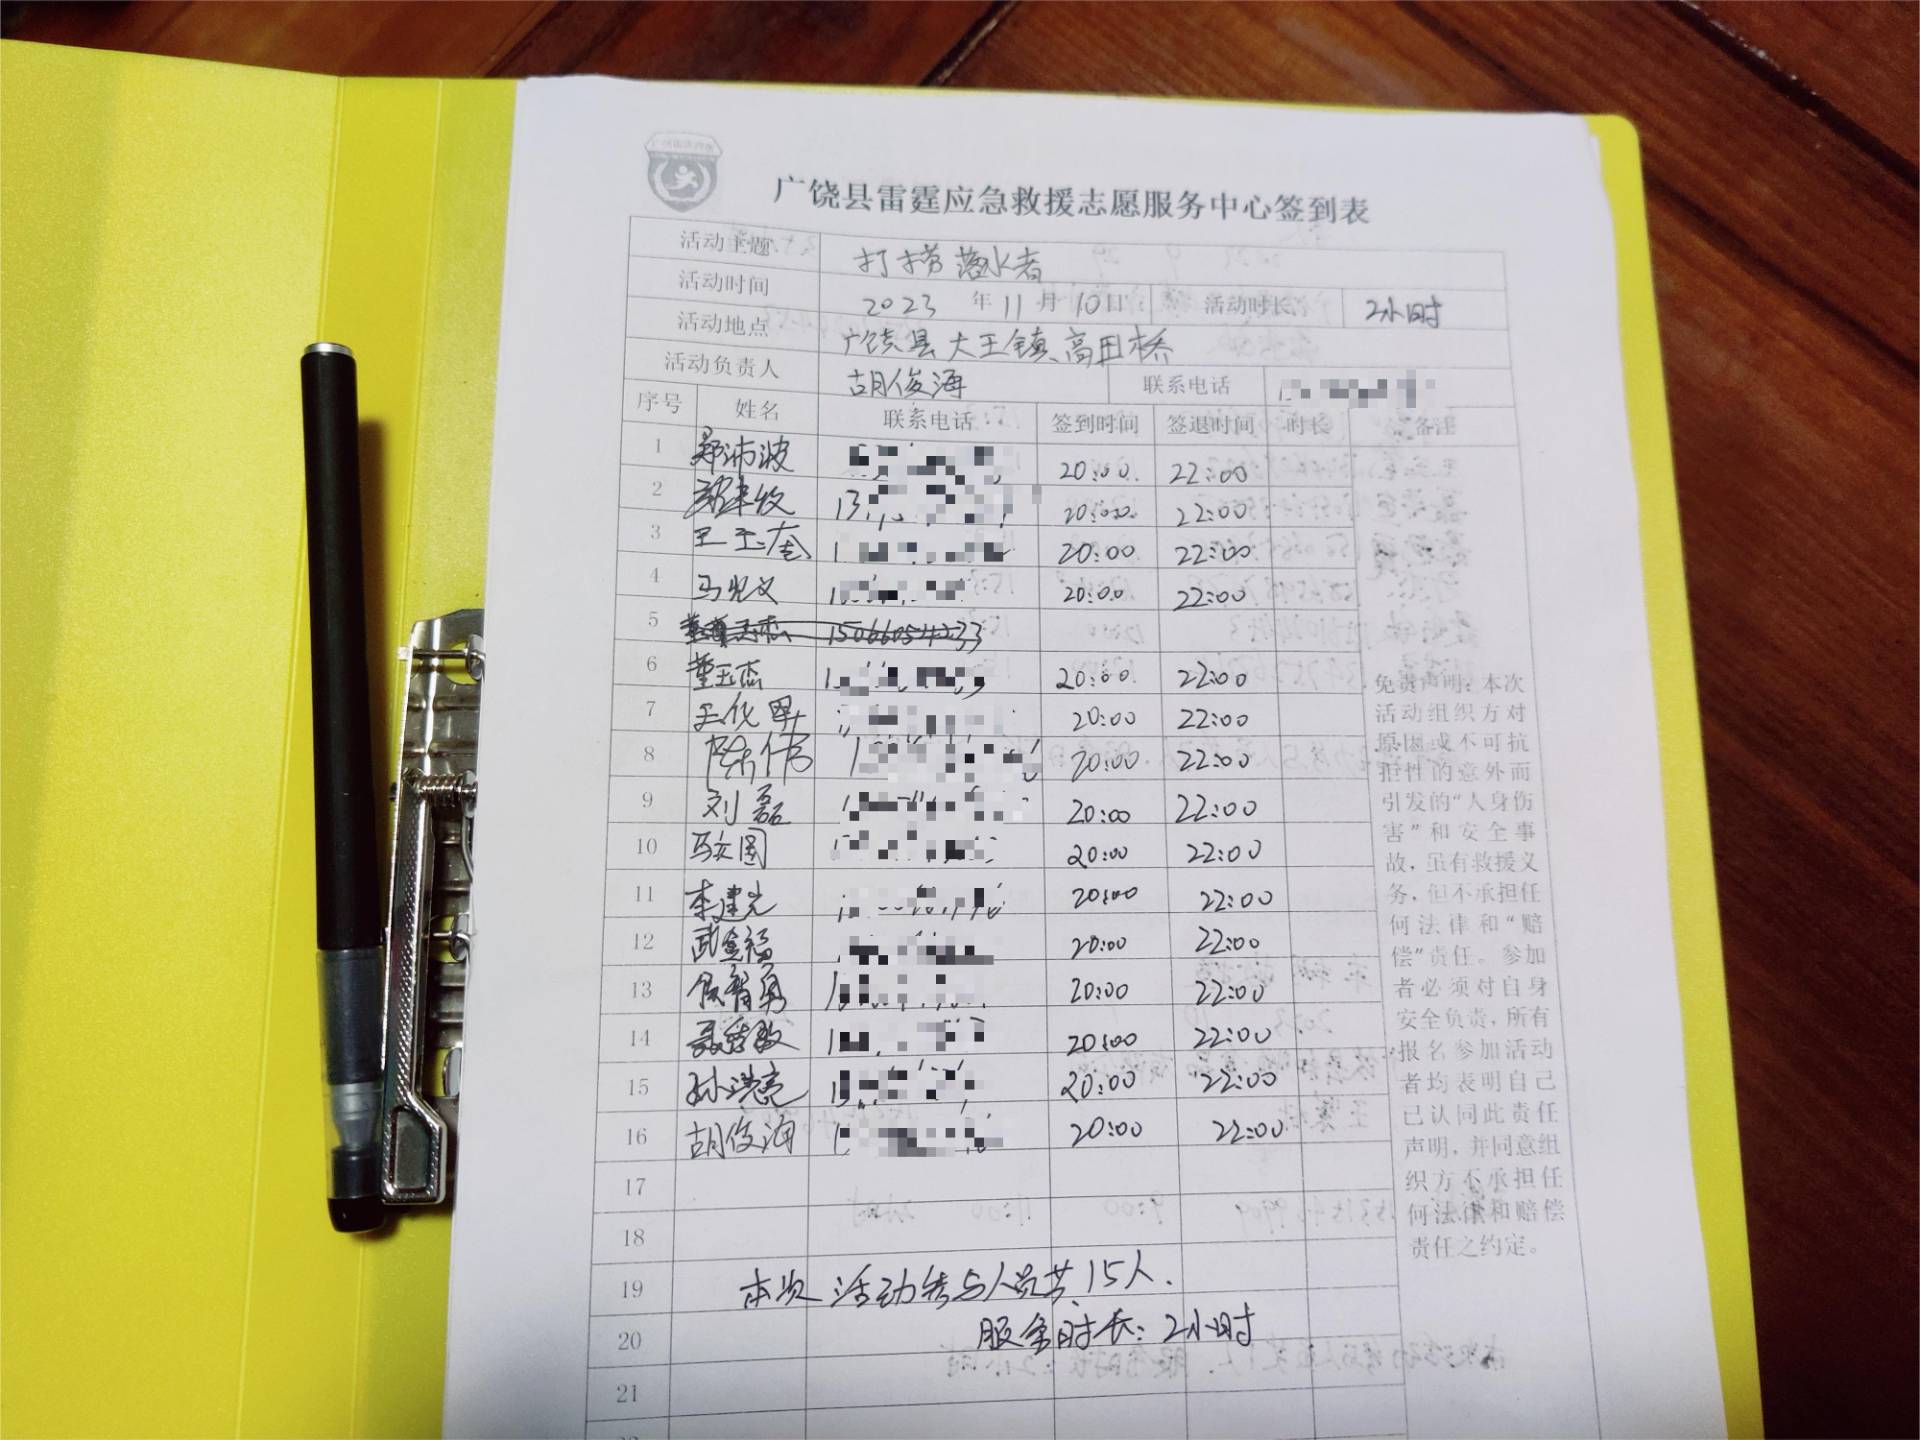 广饶县雷霆应急救援志愿服务中心签到表
活动主题 打捞落水者
活动时间 2023 年 11 月 10 日 活动时长 2小时
活动地点 广饶县大王镇高田桥
活动负责人 胡俊海 联系电话
序号 姓名 联系电话 签到时间 签退时间 时长 备注
1 郑沛波 20:00 22:00
2 20:00 22:00
3 20:00 22:00
4 20:00 22:00
5
6 董玉杰 20:00 22:00
7 20:00 22:00
8 陈伟 20:00 22:00
9 刘磊 20:00 22:00
10 马文国 20:00 22:00
11 李建光 20:00 22:00
12 武金福 20:00 22:00
13 20:00 22:00
14 20:00 22:00
15 孙洪亮 20:00 22:00
16 胡俊海 20:00 22:00
17
18
19 本次活动参与人员共15人.
20 服务时长:2小时
21
免责声明:本次
活动组织方对
原因或不可抗
拒性的意外而
引发的“人身伤
害”和安全事
故,虽有救援义
务,但不承担任
何法律和“赔
偿”责任。参加
者必须对自身
安全负责,所有
报名参加活动
者均表明自己
已认同此责任
声明,并同意组
织方不承担任
何法律和赔偿
责任之约定。